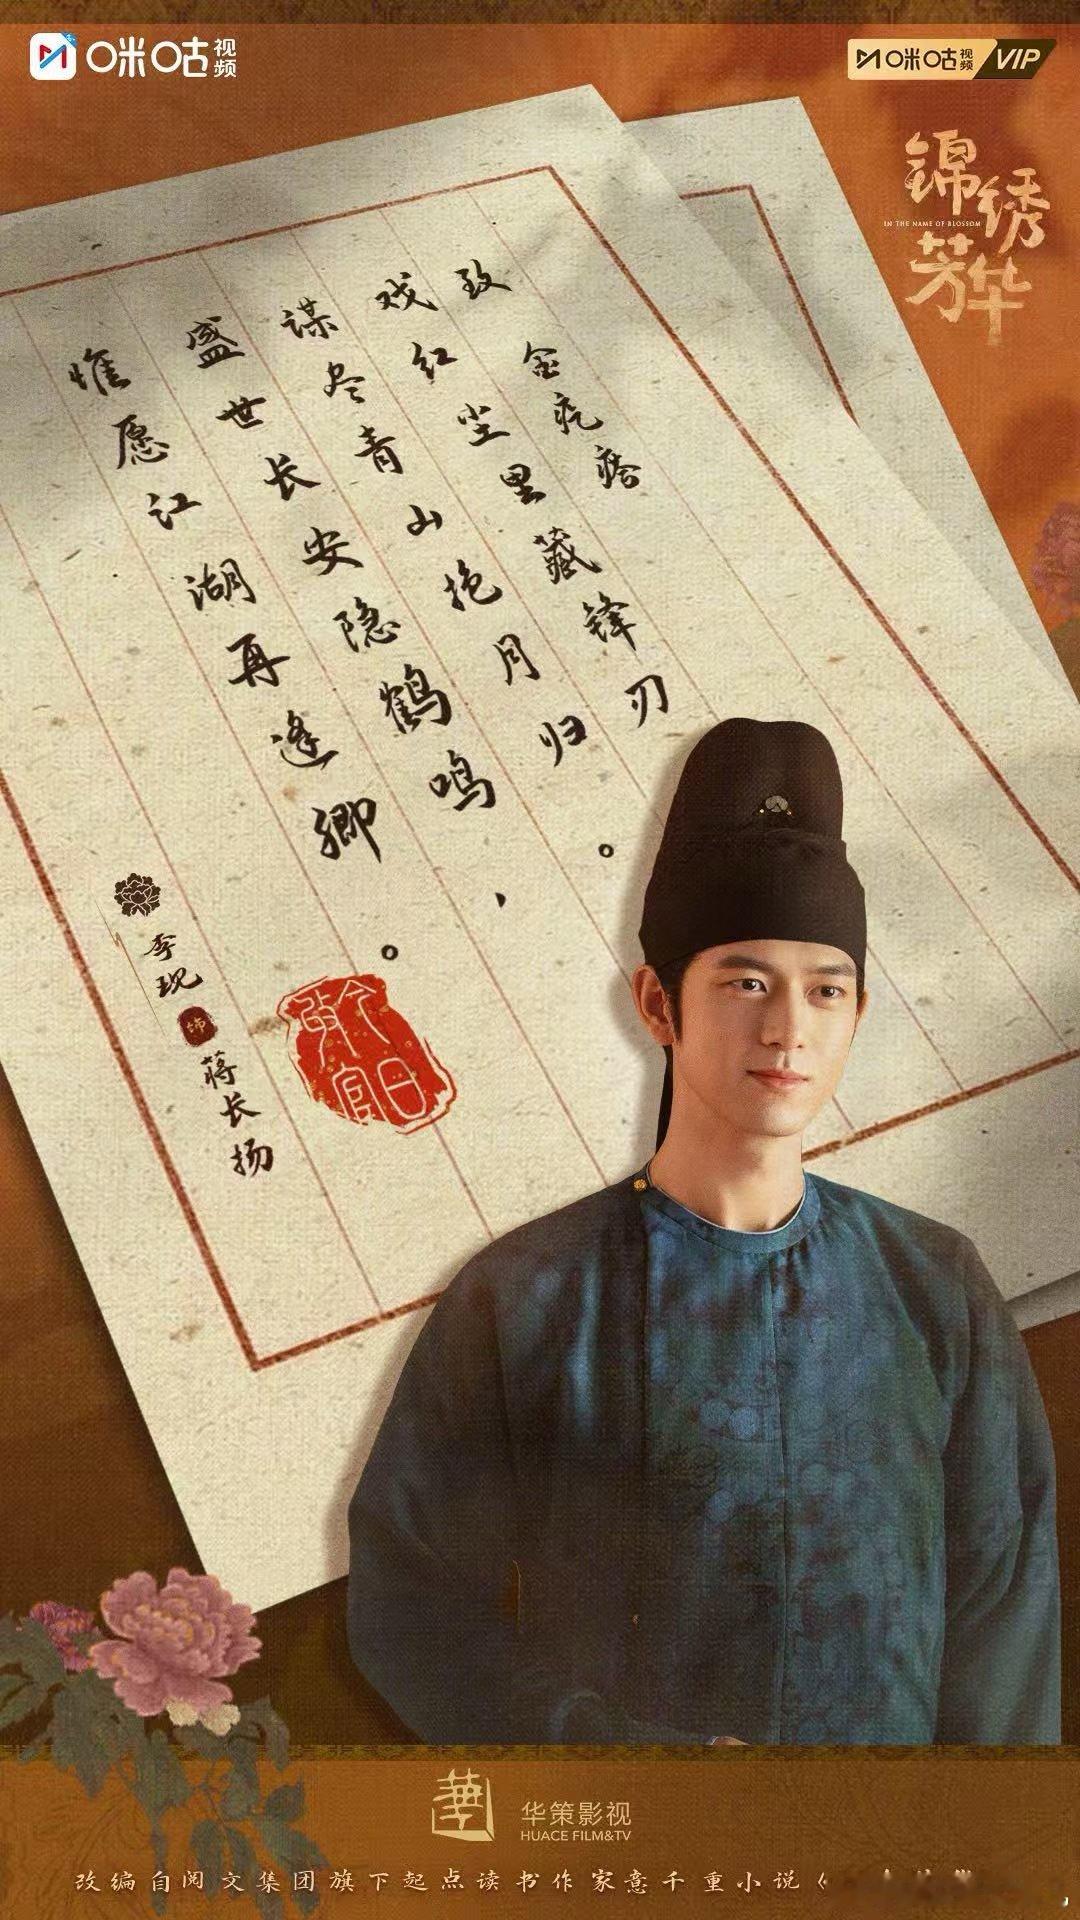 咪咕视频
咪咕视频 VIP
锦绣芳华
IN THE NAME OF BLOSSOM
致
金疙瘩
戏红尘里藏锋刃
谋尽青山抱月归。
盛世长安隐鹤鸣、
惟愿江湖再逢卿。
李现 饰 蒋长扬
今日
華
华策影视
HUACE FILM&TV
改编自阅文集团旗下起点读书作家意千重小说《